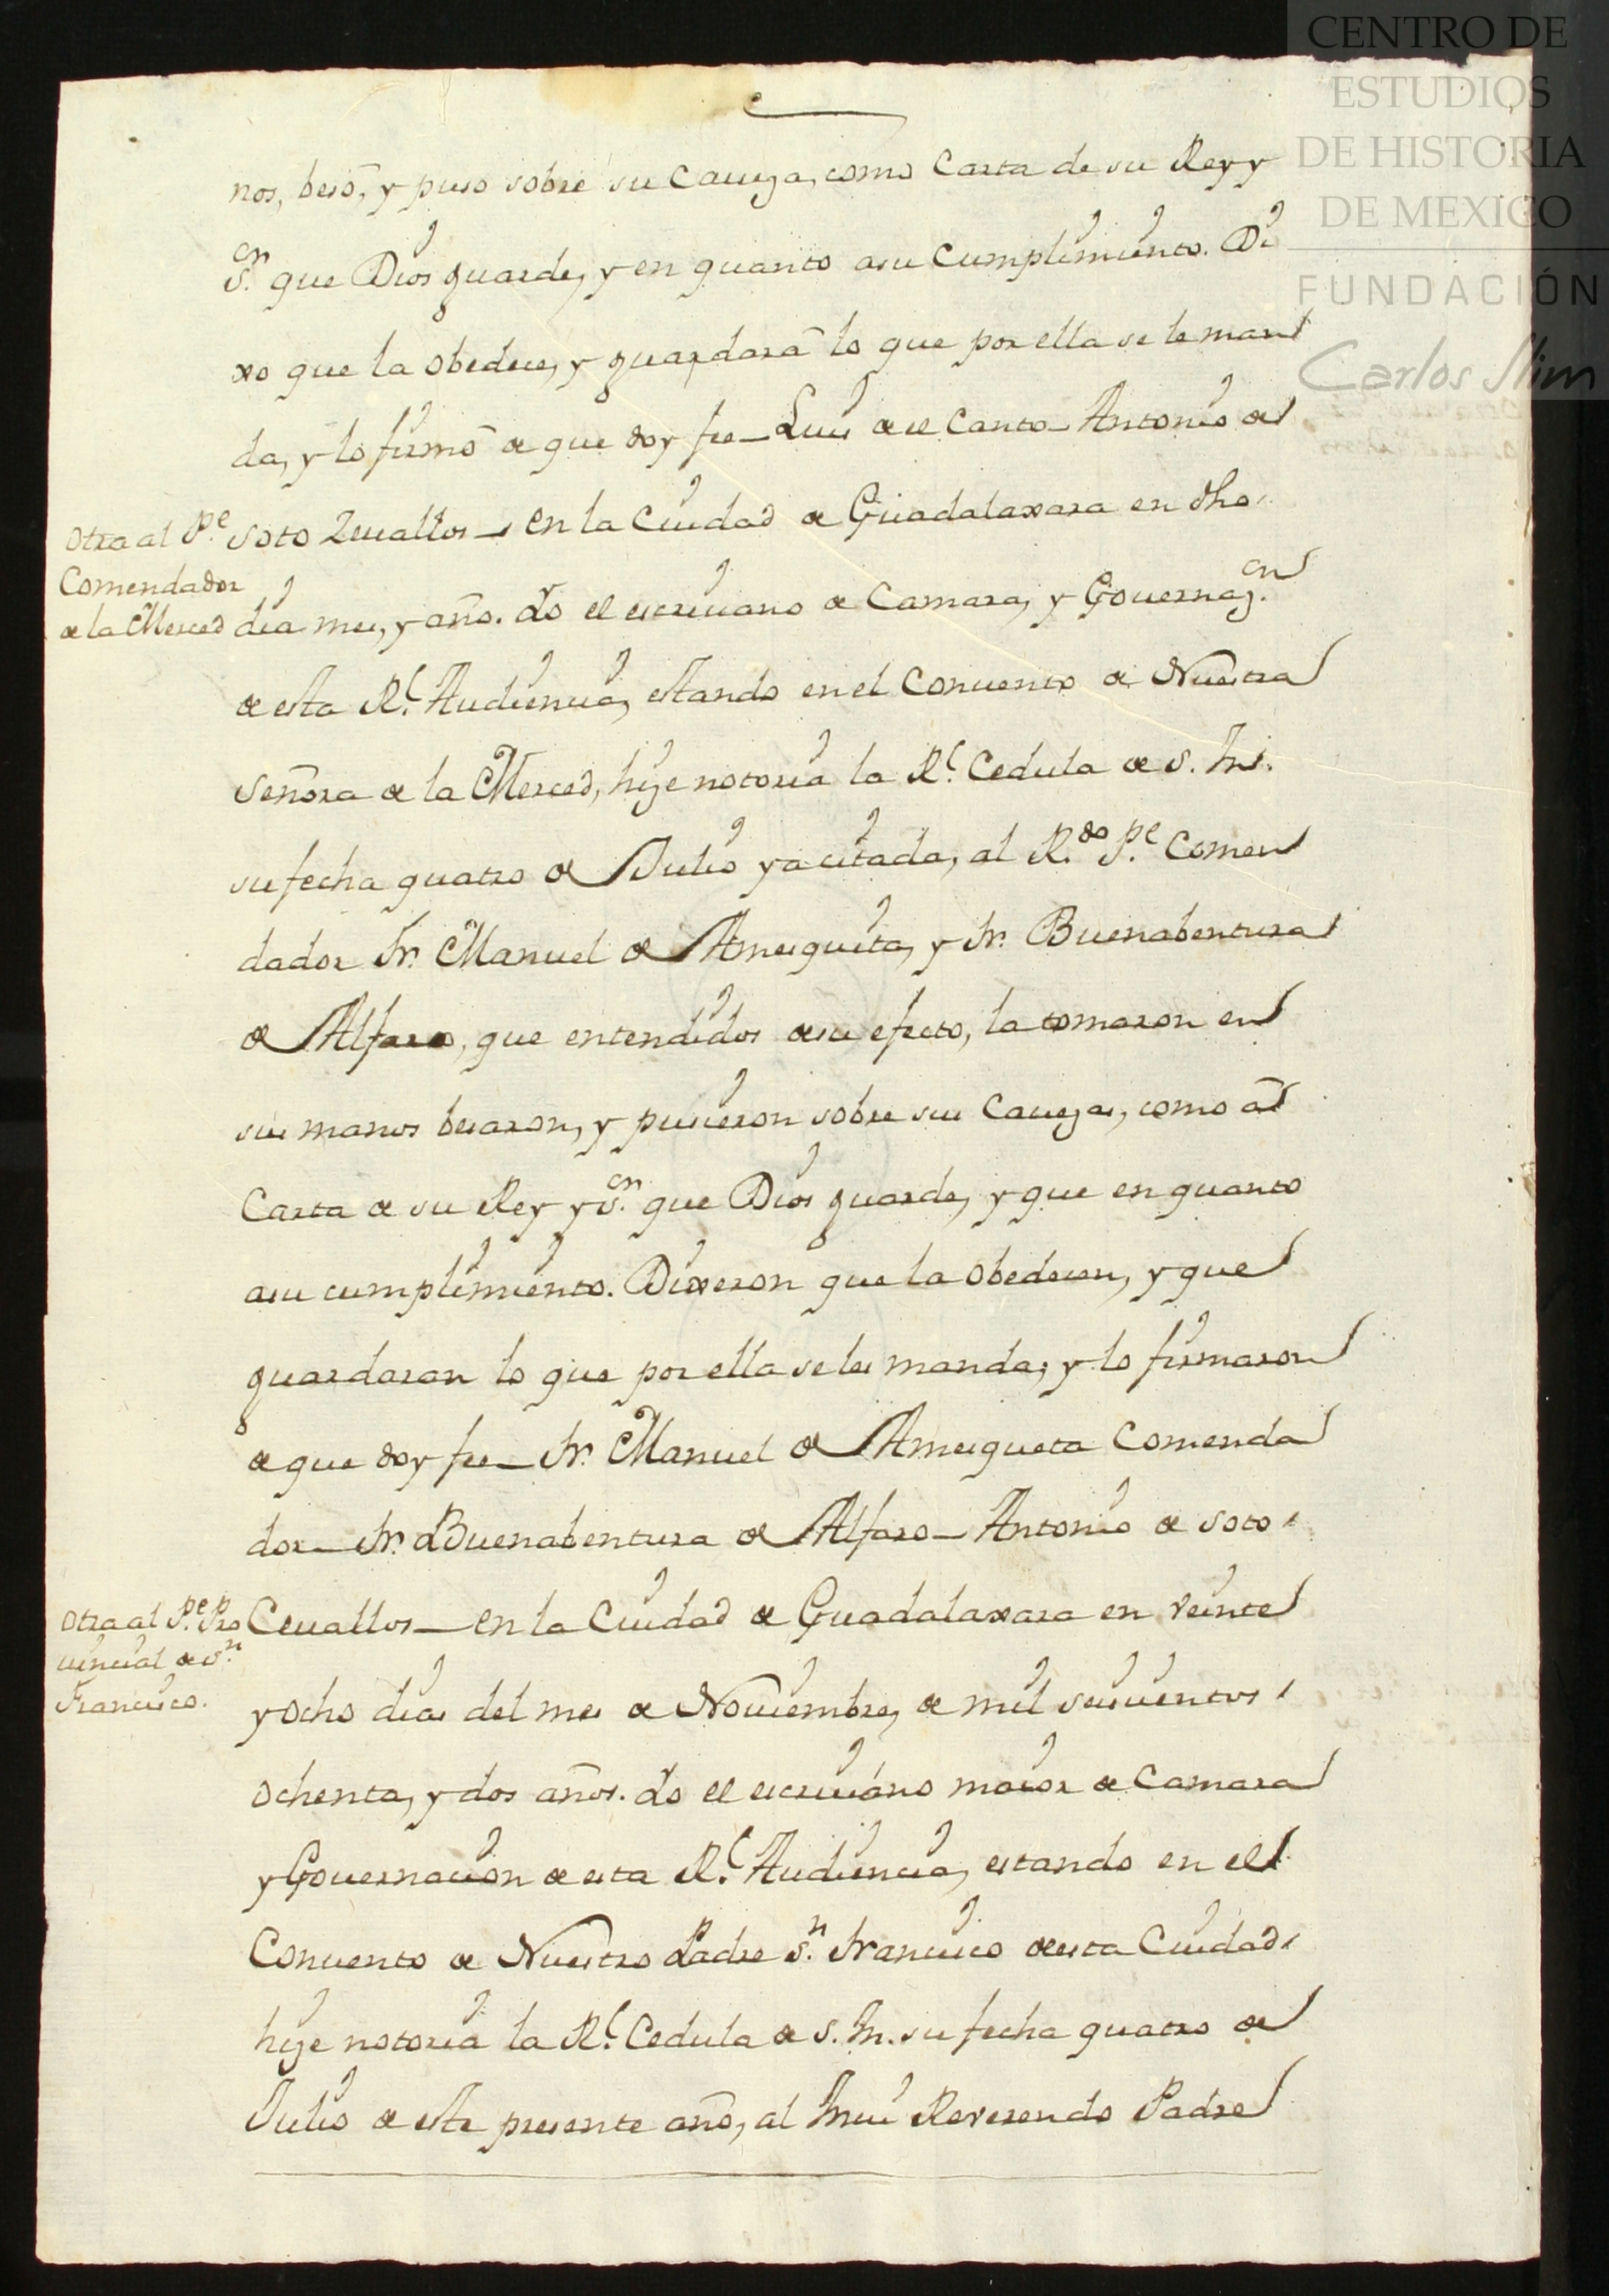 CENTRO DE
ESTUDIOS
DE HISTORIA
DE MEXICO
FUNDACIÓN
Carlos Slim
nos, besó, y puso sobre su Caueza, como Carta de su Rey y
S.or que Dios guarde, y en quanto a su Cumplimiento. Di
xo que la obedece, y guardará lo que por ella se le man
da, y lo firmó de que doy fee_ Luis de el Canto_ Antonio de
Otra al P.e
Comendador
de la Merced
Soto Zeuallos_ en la Ciudad de Guadalaxara en dho
dia mes, y año. Yo el escriuano de Camara, y Gouernaz.on
de esta R.l Audiencia, estando en el Conuento de Nuestra
Señora de la Merced, hize notoria la R.l Cedula de S. M.
su fecha quatro de Julio ya citada, al R.do P.e Comen
dador Fr. Manuel de Amesqueta, y Fr. Buenabentura
de Alfaro, que entendidos de su efecto, la tomaron en
sus manos besaron, y pusieron sobre sus Cauezas, como á
Carta de su Rey y S.or que Dios guarde, y que en quanto
a su cumplimiento. Dixeron que la obedecen, y que
guardaran lo que por ella se les manda, y lo firmaron
de que doy fee_ Fr. Manuel de Amesqueta Comenda
dor_ Fr. Buenabentura de Alfaro_ Antonio de Soto
Otra al P.e Pro
uincial de S.n
Francisco.
Ceuallos_ en la Ciudad de Guadalaxara en veinte
y ocho dias del mes de Nouiembre, de mil seiscientos
ochenta, y dos años. Yo el escriuano maior de Camara
y Gouernacion de esta R.l Audiencia, estando en el
Conuento de Nuestro Padre S.n Francisco de esta Ciudad
hize notoria la R.l Cedula de S. M. su fecha quatro de
Julio de este presente año, al Mui Reverendo Padre